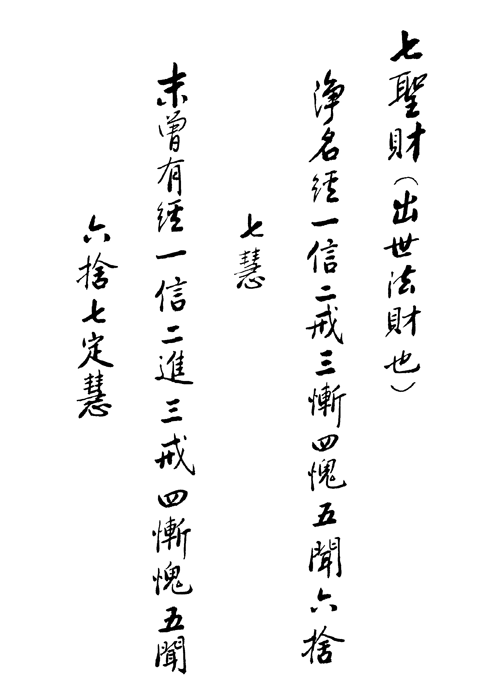 七聖財（出世法財也）
淨名經一信二戒三慚四愧五聞六捨
七慧
未曾有經一信二進三戒四慚愧五聞
六捨七定慧